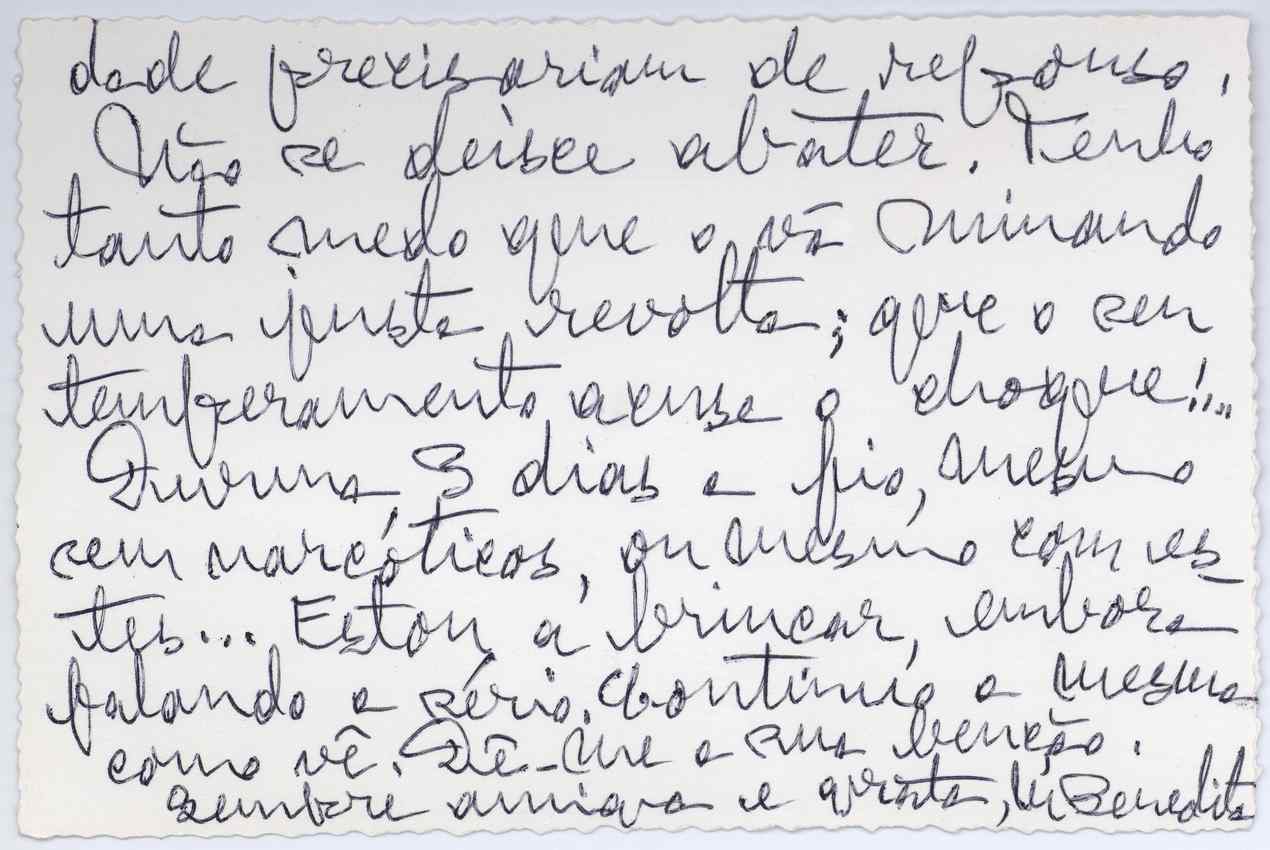 dade precisariam de repouso.
Não se deixe abater. Tenho
tanto medo que o vá minando
uma justa revolta; que o seu
temperamento acuse o choque!...
Durma 3 dias a fio, mesmo
sem narcóticos, ou mesmo com es
tes... Estou a brincar, embora
falando a sério. Continuo a mesma
como vê. Dê-me a sua benção.
Sempre amiga e grata, M Benedita